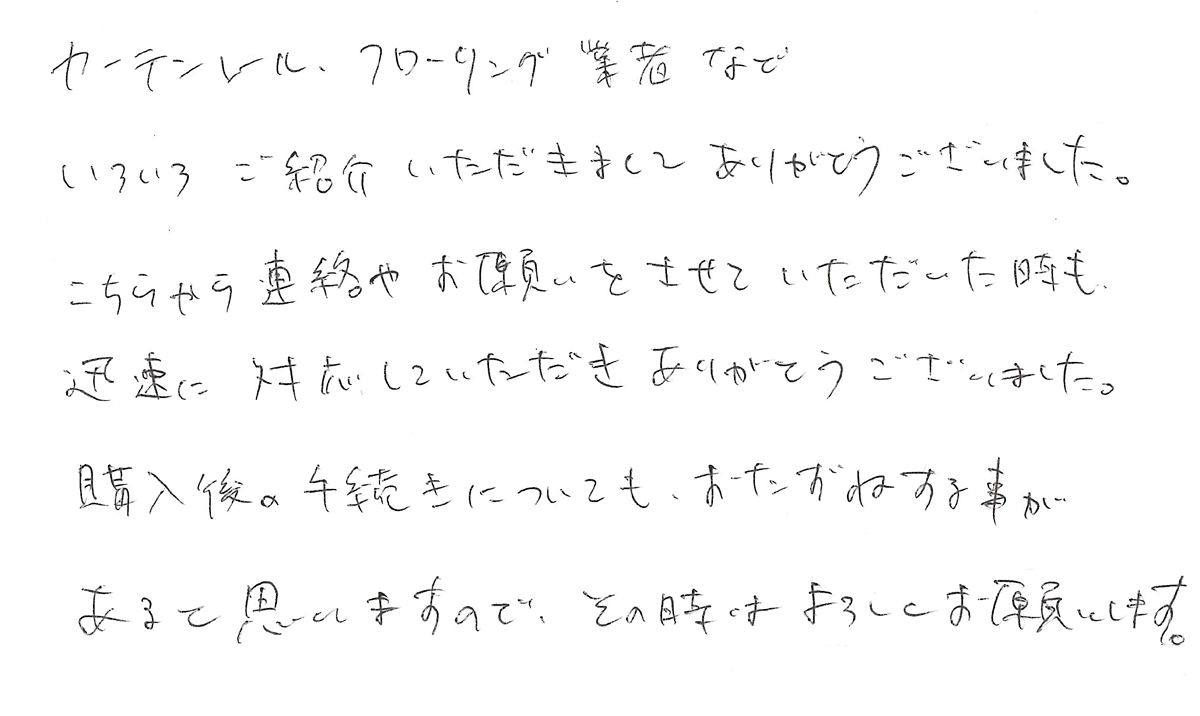 カーテンレール、フローリング業者など
いろいろご紹介いただきましてありがとうございました。
こちらから連絡やお願いをさせていただいた時も、
迅速に対応していただきありがとうございました。
購入後の手続きについても、おたずねする事が
あると思いますので、その時はよろしくお願いします。